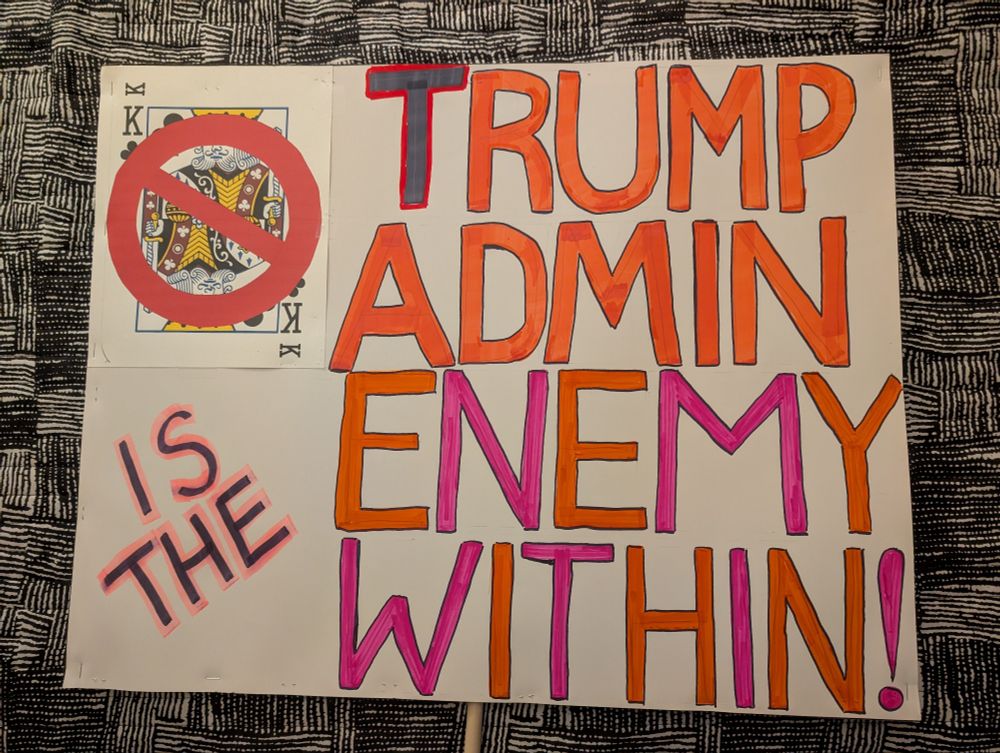 K
K
TRUMP
ADMIN
IS
THE
ENEMY
WITHIN!
K
K